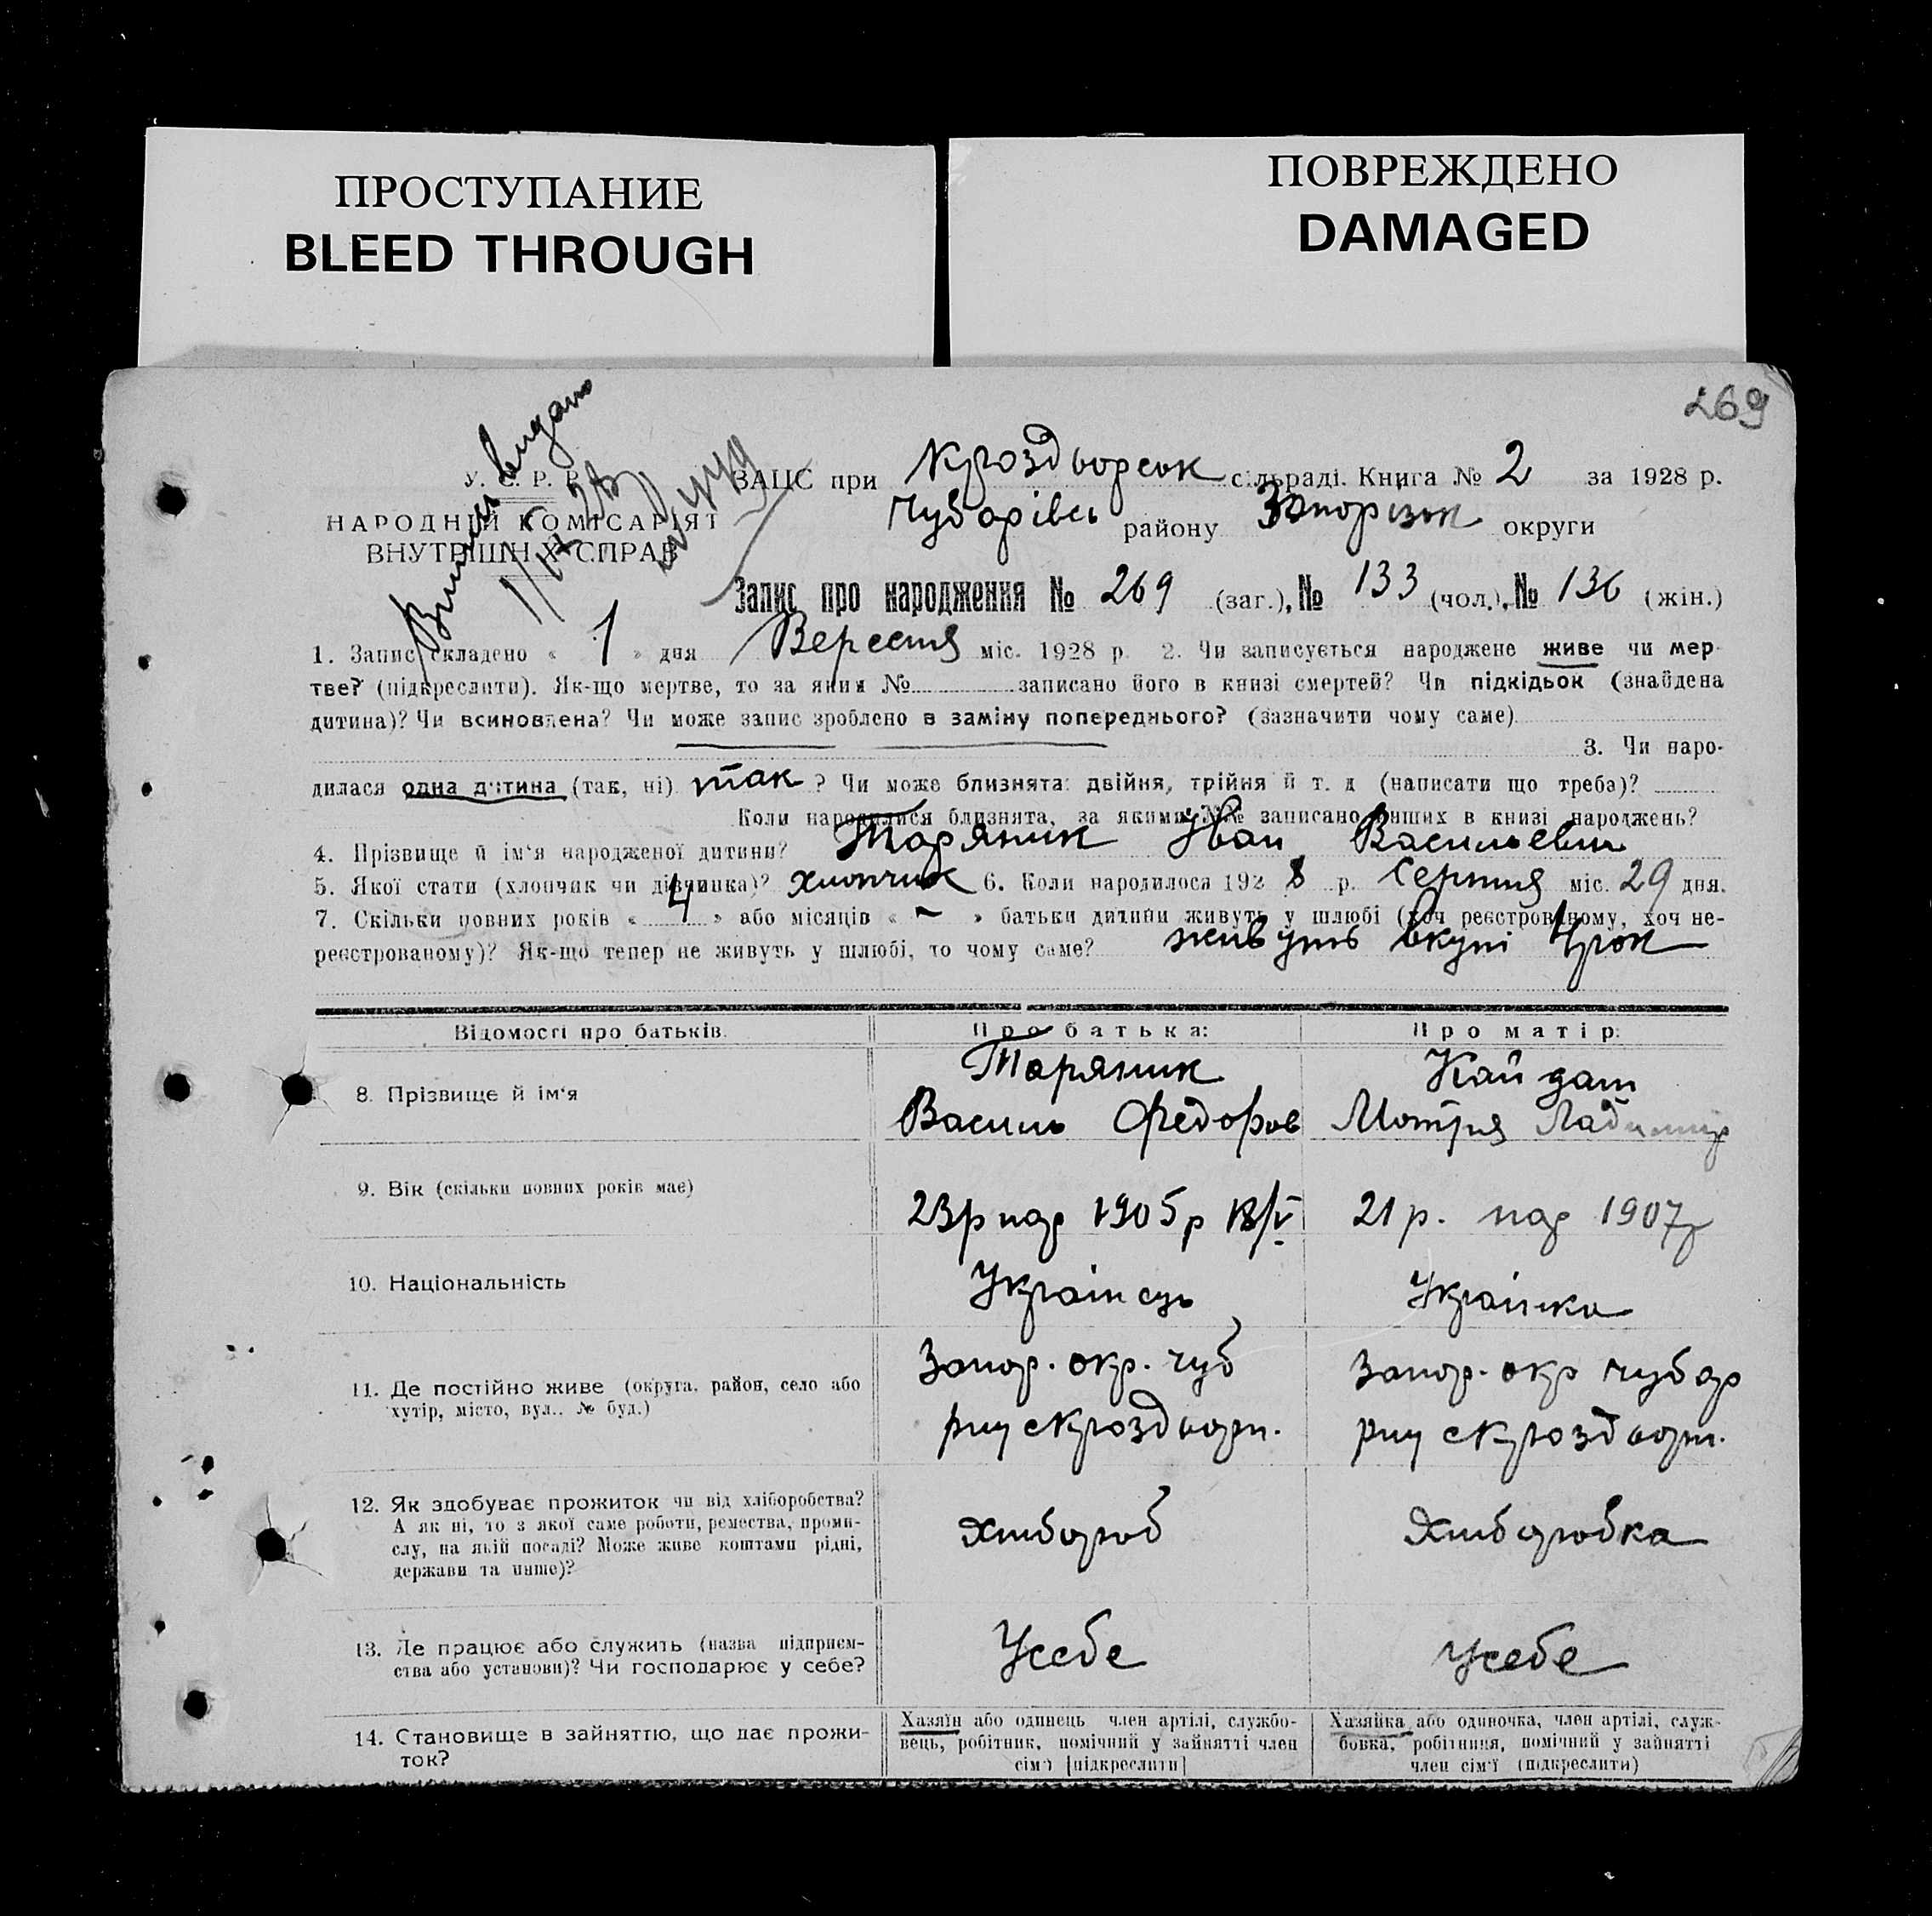 ПРОСТУПАНИЕ
BLEED THROUGH
ПОВРЕЖДЕНО
DAMAGED
269
У. С. Р. Р.
НАРОДНІЙ КОМІСАРІЯТ
ВНУТРІШНІХ СПРАВ
видано
ЗАЦС при Кроздворськ сільраді. Книга № 2 за 1928 р.
Чубарівсь району Запорізьк округи
Запис про народження № 269 (заг.), № 133 (чол.), № 136 (жін.)
1. Запис складено « 1 » дня Вересня міс. 1928 р. 2. Чи записується народжене живе чи мер-
тве? (підкреслити). Як-що мертве, то за яким № записано його в книзі смертей? Чи підкідьок (знайдена
дитина)? Чи всиновлена? Чи може запис зроблено в заміну попереднього? (зазначити чому саме)
3. Чи наро-
дилася одна дитина (так, ні) так ? Чи може близнята: двійня, трійня й т. д (написати що треба)?
Коли народилися близнята, за якими №№ записано инших в книзі народжень?
4. Прізвище й ім'я народженої дитини? Таряник Іван Васильевич
5. Якої стати (хлопчик чи дівчинка)? хлопчик 6. Коли народилося 1928 р. Серпня міс. 29 дня.
7. Скільки повних років « 4 » або місяців « – » батьки дитини живуть у шлюбі (хоч реєстрованому, хоч не-
реєстрованому)? Як-що тепер не живуть у шлюбі, то чому саме? живуть вкупі 4 рок
Відомості про батьків. Про батька: Про матір:
8. Прізвище й ім'я
Таряник
Василь Федоров
Кайдаш
Мотря
9. Вік (скільки повних років має)
23р нар 1905р 18/V
21 р. нар 1907р
10. Національність
Українець
Українка
11. Де постійно живе (округа, район, село або
хутір, місто, вул., № буд.)
Запор. окр. чуб
рну с Кроздворн.
Запор. окр чубар
рну с Кроздворн.
12. Як здобуває прожиток чи від хліборобства?
А як ні, то з якої саме роботи, ремества, проми-
слу, на якій посаді? Може живе коштами рідні,
держави та инше)?
Хлібороб
Хліборобка
13. Де працює або служить (назва підприєм-
ства або установи)? Чи господарює у себе?
Усебе
Усебе
14. Становище в зайняттю, що дає прожи-
ток?
Хазяїн або одинець член артілі, службо-
вець, робітник, помічний у зайнятті член
сім'ї [підкреслити]
Хазяйка або одиночка, член артілі, служ-
бовка, робітниця, помічний у зайнятті
член сім'ї (підкреслити)